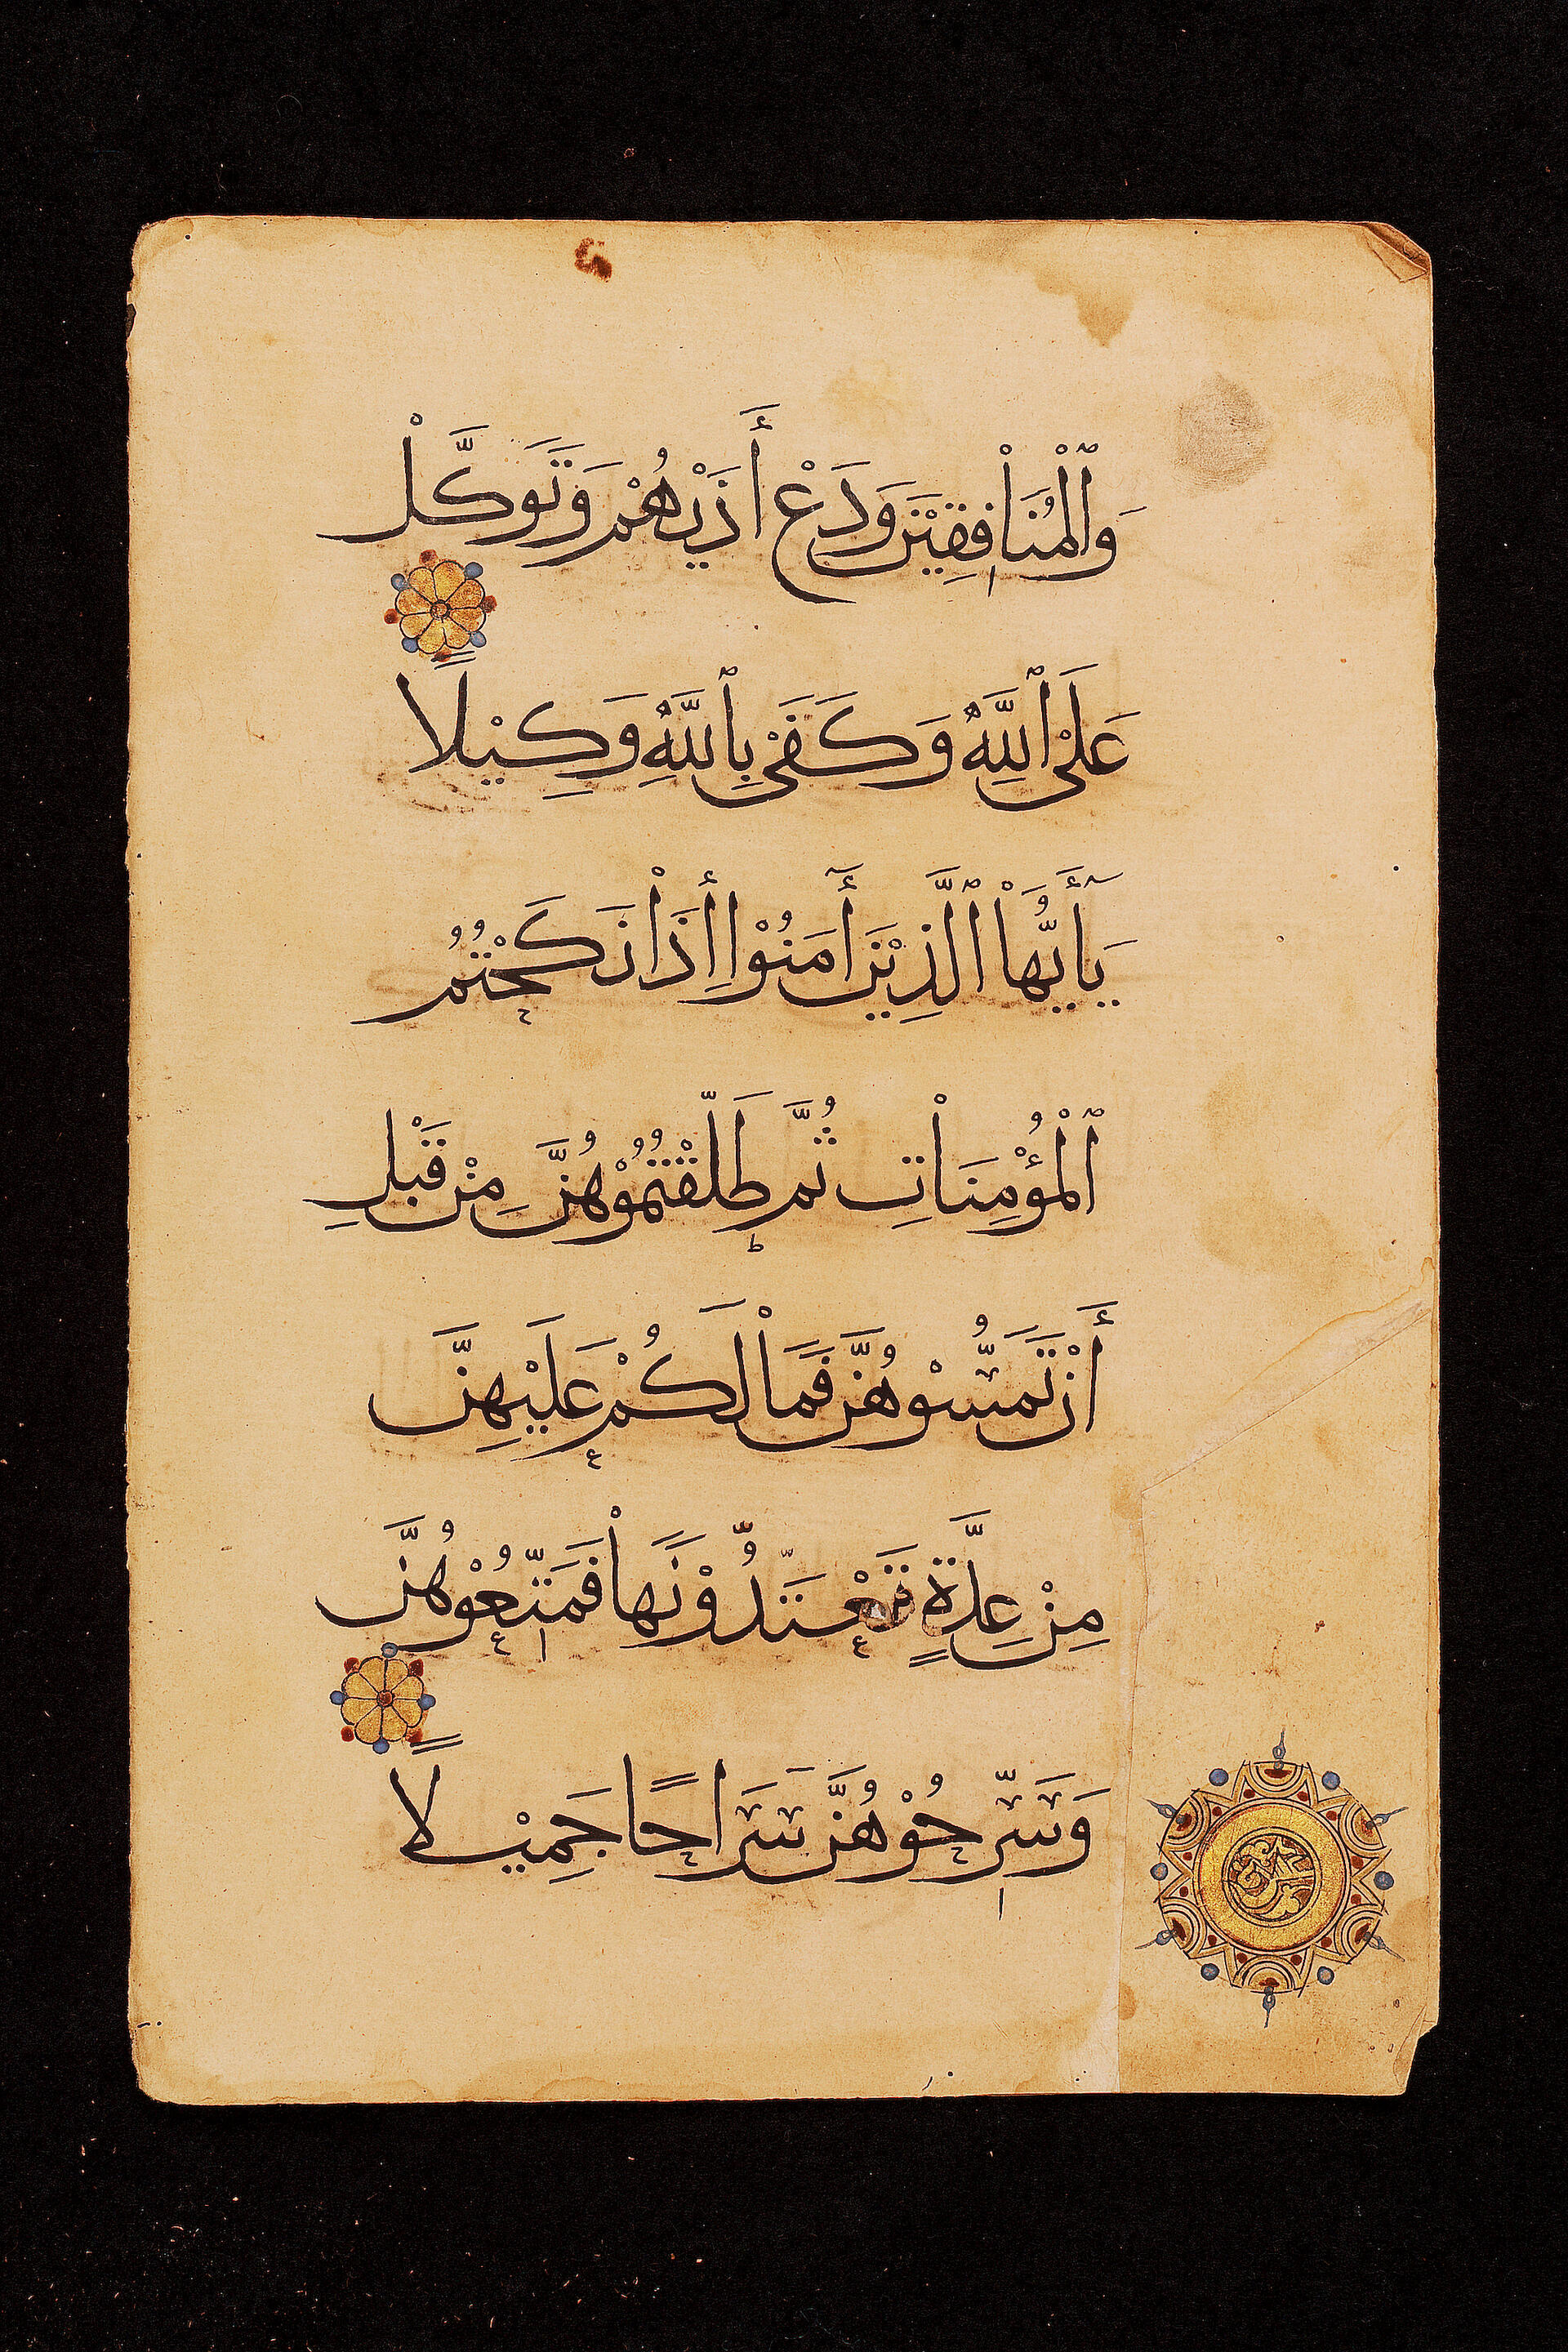 وَٱلْمُنَاْفِقِيْنَ وَدَعْ أَذَيٰهُمْ وَتَوَكَّلْ
عَلَىْ ٱللَّهِ وَكَفَىْ بِٱللَّهِ وَكِيْلًا
يَٰٓأَيُّهَاْ ٱلَّذِيْنَ أٓمَنُوْا إِذَاْ نَكَحْتُمُ
ٱلْمُؤْمِنَاْتِ ثُمَّ طَلَّقْتُمُوْهُنَّ مِنْ قَبْلِ
أَنْ تَمَسُّوْهُنَّ فَمَاْ لَكُمْ عَلَيْهِنَّ
مِنْ عِدَّةٍ تَعْتَدُّوْنَهَاْ فَمَتِّعُوْهُنَّ
وَسَرِّحُوْهُنَّ سَرَاحًا جَمِيْلًا